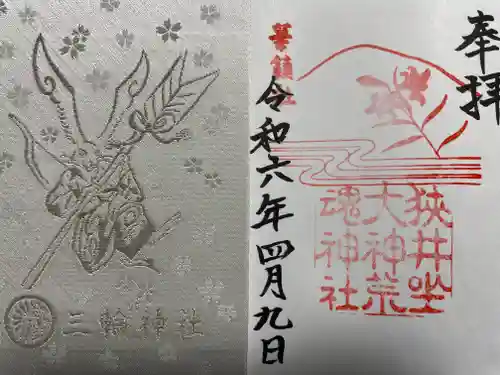 三輪神社
三輪神社
奉拝
華鎮社
狭井坐
大神荒
魂神社
令和六年四月九日